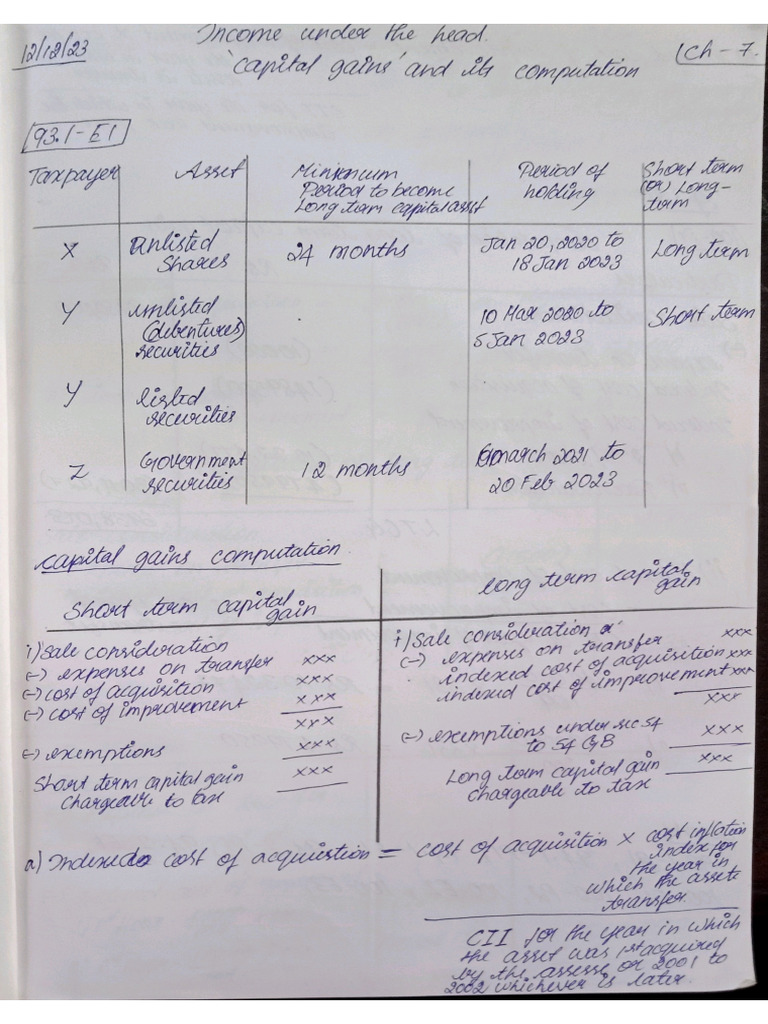 12/12/23
Income under the head.
'capital gains' and its computation
Ch - 7.
93.1-E1
Taxpayer Asset Minimum Period to become Long term capital asset Period of holding Short term (or) Long-term
X unlisted Shares 24 months Jan 20, 2020 to 18 Jan 2023 Long term
Y unlisted (debentures) securities 10 Mar 2020 to 5 Jan 2023 Short term
Y listed securities
Z Government securities 12 months march 2021 to 20 Feb 2023
Capital gains computation.
Short term capital gain
i) Sale consideration
(-) expenses on transfer xxx
(-) cost of acquisition xxx
(-) cost of improvement xxx
xxx
(-) exemptions xxx
Short term capital gain xxx
chargeable to tax
Long term capital gain
i) Sale consideration xxx
(-) expenses on transfer xxx
indexed cost of acquisition xxx
indexed cost of improvement xxx
xxx
(-) exemptions under sec 54 xxx
to 54 GB
Long term capital gain xxx
chargeable to tax
a) Indexed cost of acquistion = cost of acquisition x cost inflation
index for
the year in
which the assets
transfer.
CII for the year in which
the asset was 1st acquired
by the assesse or 2001 to
2002 whichever is later.